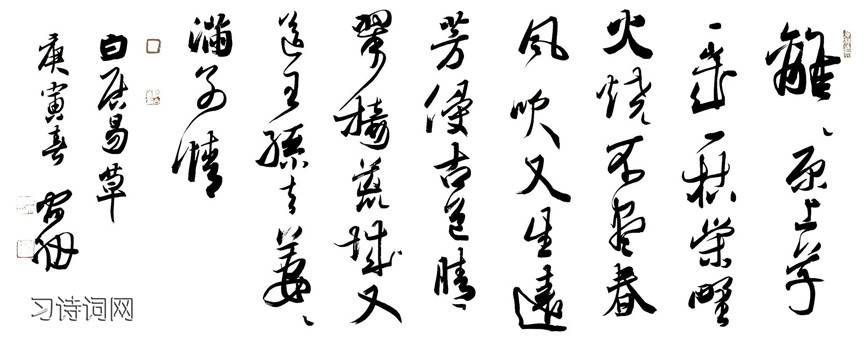 離〻原上草
一歲一枯榮野
火燒不盡春
風吹又生遠
芳侵古道晴
翠接荒城又
送王孫去萋〻
滿別情
白居易草
庚寅春
习诗词网